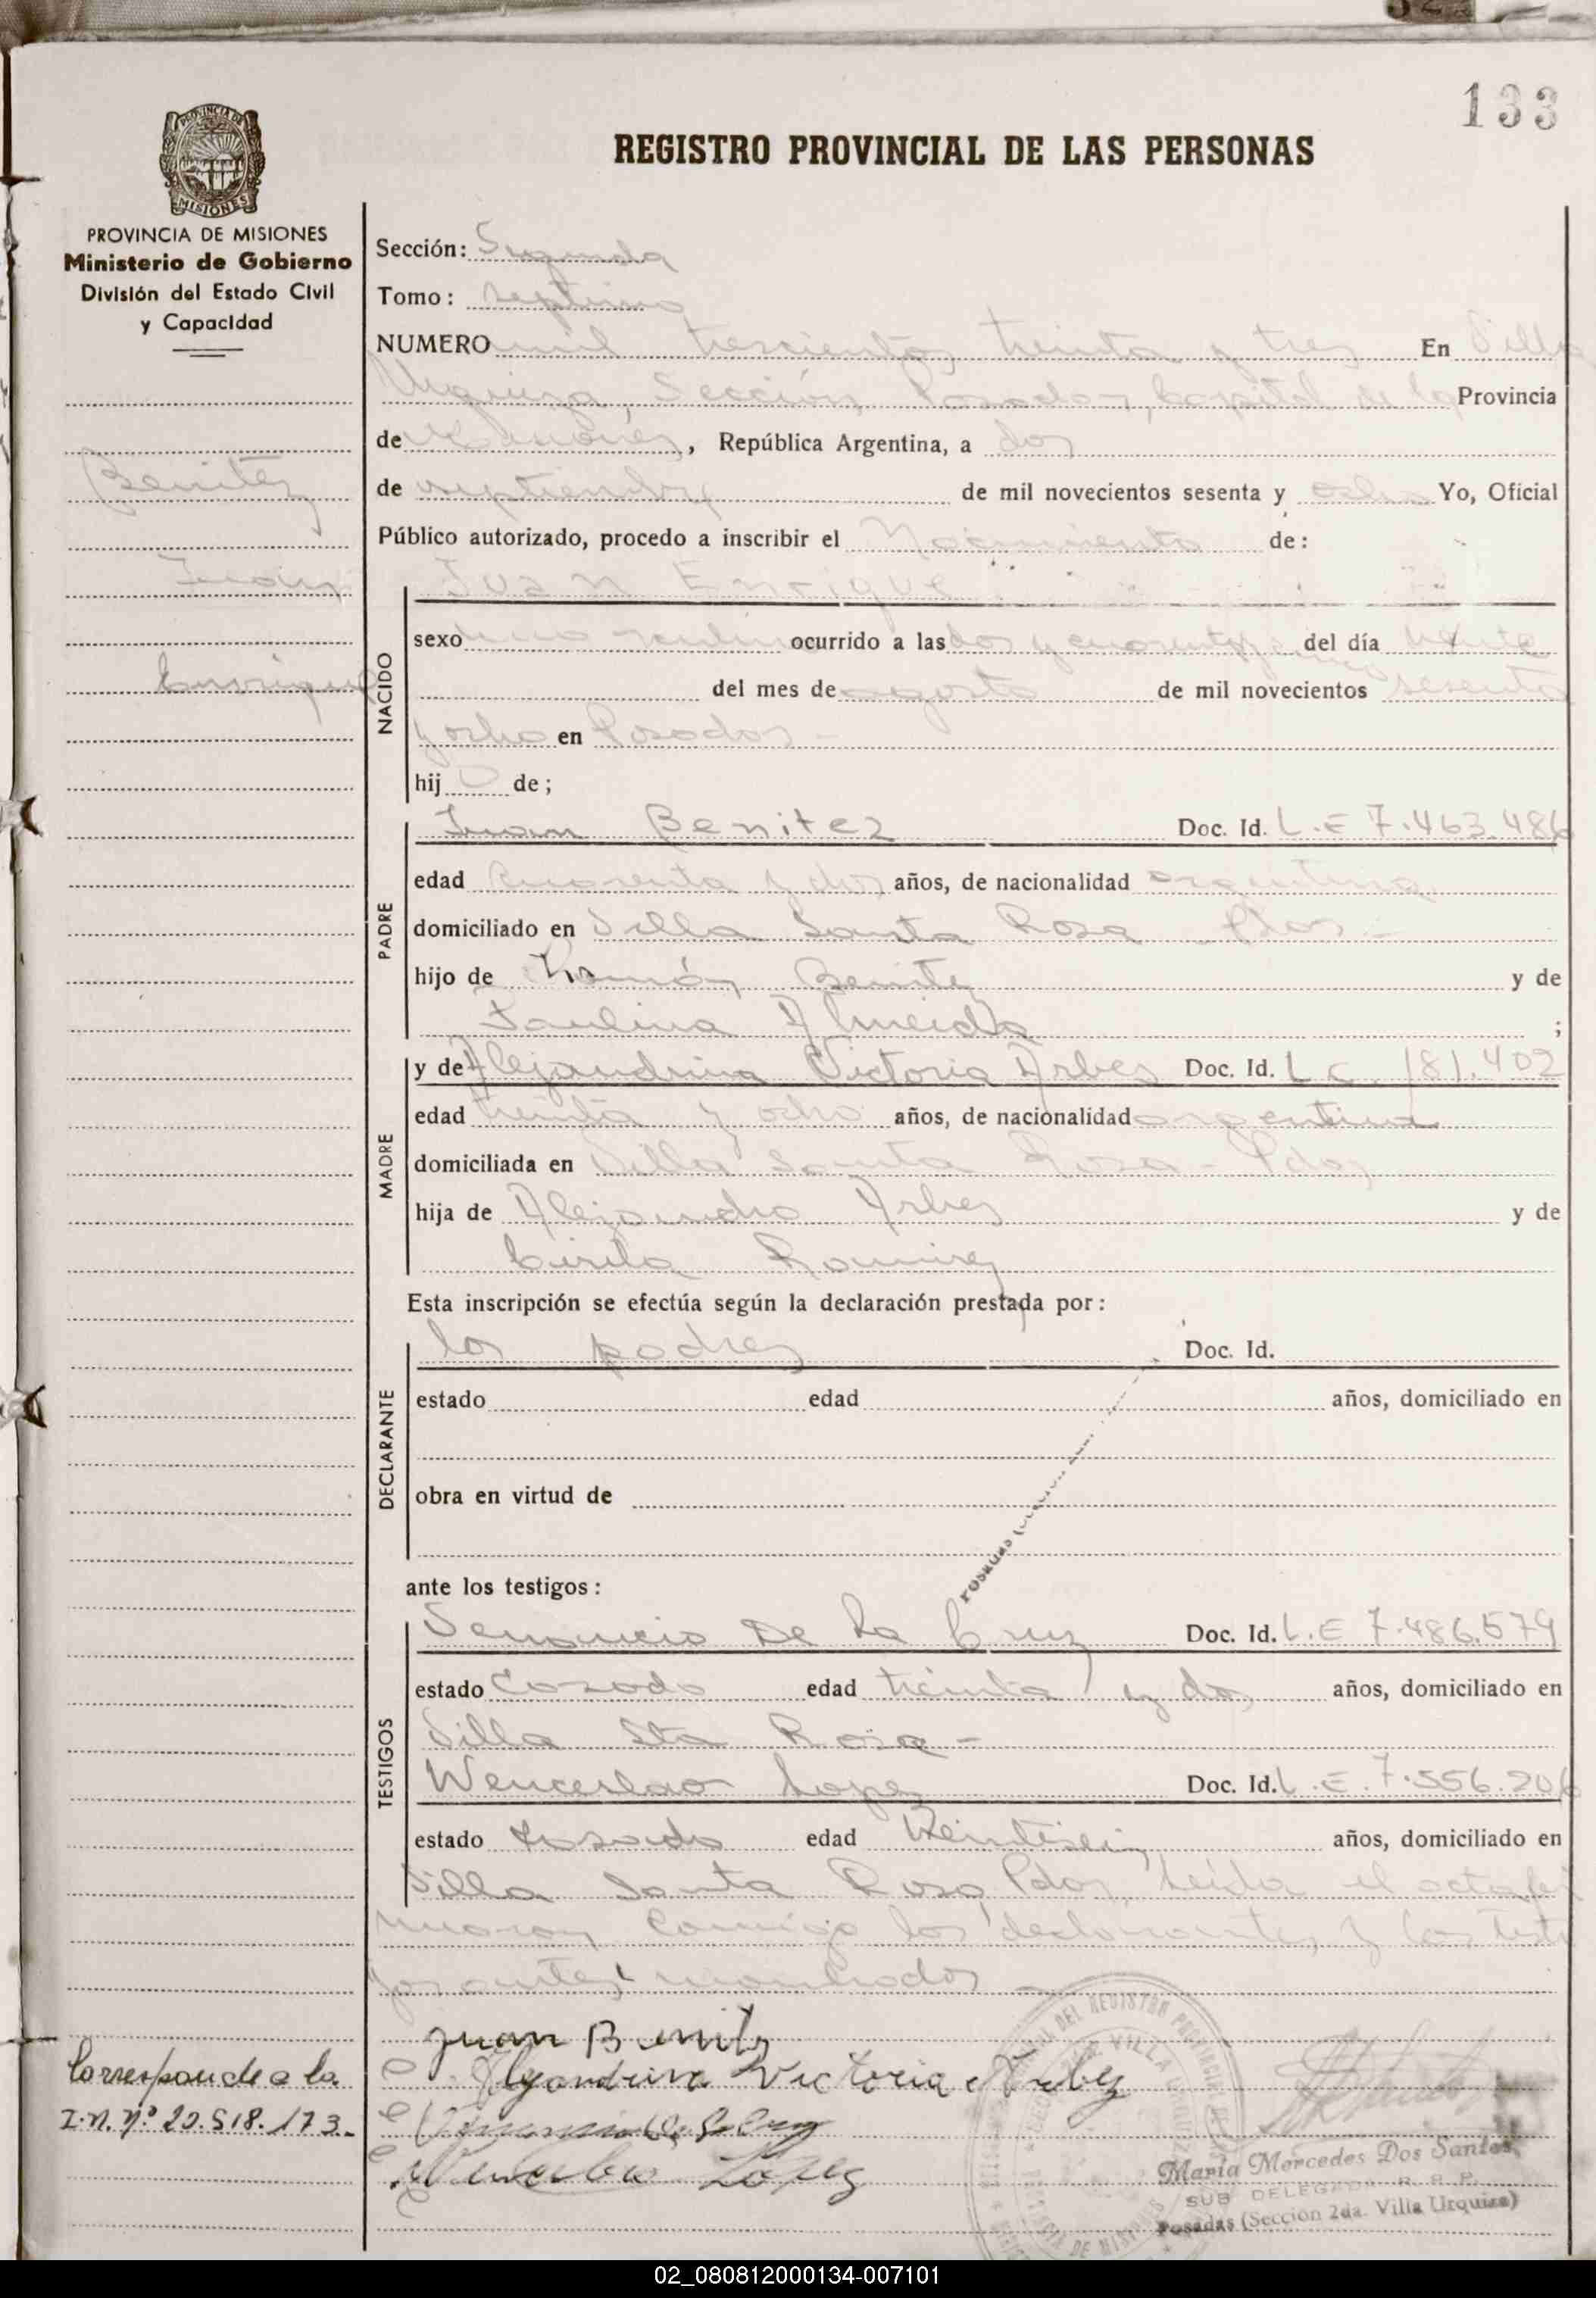 133
REGISTRO PROVINCIAL DE LAS PERSONAS
PROVINCIA DE MISIONES
MISIONES
PROVINCIA DE MISIONES
Ministerio de Gobierno
División del Estado Civil
y Capacidad
Benitez
Juan
Enrique
Sección: Segunda
Tomo: septimo
NUMERO mil trescientos treinta y tres En Villa
Urquiza, Sección Posadas, Capital de la Provincia
de Misiones, República Argentina, a dos
de septiembre de mil novecientos sesenta y ocho Yo, Oficial
Público autorizado, procedo a inscribir el Nacimiento de:
Juan Enrique
NACIDO
sexo masculino ocurrido a las dos y cuarenta del día
del mes de agosto de mil novecientos sesenta
y ocho en Posadas -
hijo de;
PADRE
Juan Benitez Doc. Id. L.E 7.463.486
edad cuarenta y dos años, de nacionalidad argentina
domiciliado en Villa Santa Rosa Pdas -
hijo de Ramón Benitez y de
Paulina Almeida ;
MADRE
y de Alejandrina Victoria Arbes Doc. Id. L C. 181.402
edad treinta y ocho años, de nacionalidad argentina
domiciliada en Villa Santa Rosa - Pdas
hija de Alejandro Arbes y de
Cirila Ramirez
Esta inscripción se efectúa según la declaración prestada por:
DECLARANTE
los padres Doc. Id.
estado edad años, domiciliado en
obra en virtud de
ante los testigos:
TESTIGOS
Venancio De La Cruz Doc. Id. L.E 7.486.579
estado Casado edad treinta y dos años, domiciliado en
Villa Sta Rosa -
Wenceslao Lopez Doc. Id. L.E. 7.556.206
estado casado edad Veintiseis años, domiciliado en
Villa Santa Rosa Pdas, Leída el acta fir
maron conmigo los declarantes y los testi
gos antes nombrados
Juan Benitez
Alejandrina Victoria Arbez
Venancio De la Cruz
Wenceslao López
Corresponde a la
I.N. Nº 20.518.173.-
María Mercedes Dos Santos
SUB DELEGADA R. P. P.
Posadas (Sección 2da. Villa Urquiza)
02_080812000134-007101